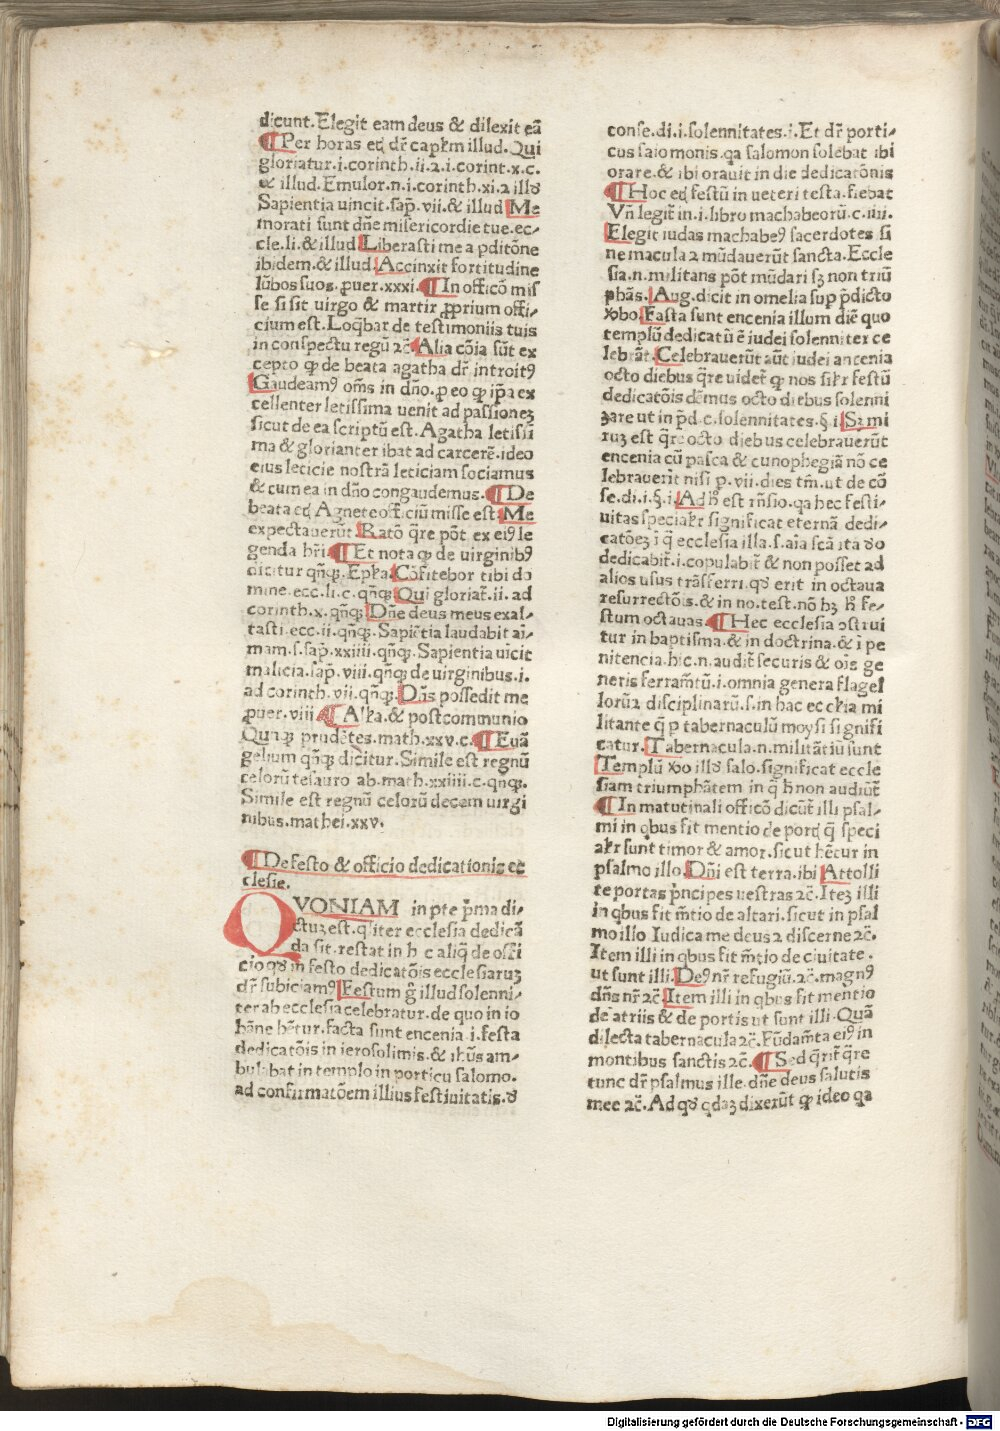 dicunt.Elegit eam deus & dilexit eã
¶Per horas eciã dr̃ capłm illud.Qui
gloriatur.i.corinth.ii.⁊.i.corint.x.c.
& illud.Emulor.n.i.corinth.xi.⁊ illđ
Sapientia uincit.sap̃.vii.& illud Me
morati sunt dñe misericordie tue.ec⸗
cle.li.& illud Liberasti me a pditõne
ibidem.& illud.Accinxit fortitudine
lũbos suos.puer.xxxi.¶In officõ mis
se si sit virgo & martir ꝓprium offi⸗
cium est.Loq̃bar de testimoniis tuis
in conspectu regũ ⁊c̃ Alia cõia sũt ex
cepto ꝙ de beata agatha dr̃ introitꝰ
Gaudeamꝰ om̃s in dño.ꝑ eo ꝙ ip̃a ex
cellenter letissima uenit ad passionez
sicut de ea scriptũ est.Agatha letissi
ma & glorianter ibat ad carcerẽ.ideo
eius leticie nostrã leticiam sociamus
& cum ea in dño congaudemus.¶De
beata eciã Agnete officiũ misse est.Me
expectauerũt.Ratõ q̃re põt ex eiꝰ le
genda hr̃i ¶Et nota ꝙ de uirginibꝰ
dicitur qñqꝫ.Epła.Cõfitebor tibi do
mine.ecc.li.c.qñqꝫ Qui gloriat̃.ii.ad
corinth.x.qñqꝫ Dñe deus meus exal⸗
tasti.ecc.ii.qñqꝫ.Sapiẽtia laudabit ai⸗
mam.s.sap̃.xxiiii.qñqꝫ.Sapientia uĩcit
malicia.sap̃.viii.qñqꝫ de uirginibus.i.
ad corinth.vii.qñqꝫ.Dñs possedit me
ꝓuer.viii ¶Alła.& postcommunio
Quinqꝫ prudẽtes.math.xxv.c.¶Euã
gelium qñqꝫ dicitur.Simile est regnũ
celorũ tesauro ab.math.xxiiii.c.qnqꝫ.
Simile est regnũ celorũ decem uirgi
nibus.mathei.xxv.
¶De festo & officio dedicationis ec
clesie.
QVONIAM in pte p̃ma di⸗
ctuz est.qłiter ecclesia dedicã
da sit.restat in h c aliq̃ de offi
cio qđ in festo dedicatõis ecclesiaruz
dr̃ subiciamꝰ Festum g̃ illud solenni⸗
ter ab ecclesia celebratur.de quo in io
hãne hẽtur.facta sunt encenia.i.festa
dedicatõis in ierosolimis.& ihũs am⸗
bulabat in templo in porticu salomo.
ad confirmatõem illius festiuitatis.đ
conse.di.i.solennitates.i.Et dr̃ porti⸗
cus saiomonis.qa salomon solebat ibi
orare.& ibi orauit in die dedicatõnis
¶Hoc eciã festũ in ueteri testa.fiebat
Vñ legit̃ in.i.libro machabeorũ.c.iiii.
Elegit iudas machabeꝰ sacerdotes si
ne macula ⁊ mũdauerũt sancta.Eccle
sia.n.militans põt mũdari sꝫ non triũ
phãs.Aug.dicit in omelia sup p̃dicto
x̃bo.Fasta sunt encenia illum diẽ quo
templũ dedicatũ ẽ iudei solenniter ce
lebrãt.Celebrauerũt aũt iudei ancenia
octo diebus q̃re uidet̃ ꝙ nos siłr festũ
dedicatõis dẽmus octo diebus solenni
zare ut in p̃d.c.solennitates.§.i.Sȝ mi
ruȝ est q̃re octo diebus celebrauerũt
encenia cũ pasca & cunophegiã nõ ce
lebrauerit nisi p.vii.dies tm̃.ut de cõ
se.di.i.§.i.Ad h̃ est rñsio.qa hec festi⸗
uitas speciałr significat eternã dedi⸗
catõeȝ ĩ q̃ ecclesia illa.s.aĩa scã ita đo
dedicabit̃.i.copulabit̃ & non posset ad
alios usus trãsferri.qđ erit in octaua
resurrectõis.& in no.test.nõ hȝ h̃ fe⸗
stum octauas.¶Hec ecclesia ostrui
tur in baptisma.& in doctrina.& ĩ pe
nitencia.hic.n.audit̃ securis & oĩs ge
neris ferram̃tũ.i.omnia genera flagel
lorũ⁊ disciplinarũ.s.in hac ecclesia mi
litante q̃ p tabernaculũ moysi signifi
catur.Tabernacula.n.militãtiũ sunt
Templũ x̃o illđ salo.significat eccle
siam triumphãtem in q̃ h̃ non audiũt̃
¶In matutinali officõ dicũt̃ illi psal⸗
mi in qbus fit mentio de portȷ q̃ speci
ałr sunt timor & amor.sicut hẽtur in
psalmo illo.Dñi est terra.ibi Attolli
te portas p̃ncipes uestras ⁊c̃.Iteȝ illi
in qbus fit m̃tio de altari.sicut in psal
mo illo Iudica me deus ⁊ discerne ⁊c̃.
Item illi in qbus fit m̃tio de ciuitate.
ut sunt illi.Deꝰ nr̃ refugiũ.⁊c̃.magnꝰ
dñs nr̃ ⁊c̃.Item illi in qbus fit mentio
de atriis & de portis ut sunt illi.Quã
dilecta tabernacula ⁊c̃.Fũdam̃ta eiꝰ in
montibus sanctis ⁊c̃.¶Sed q̃rit̃ q̃re
tunc dr̃ psalmus ille.dñe deus salutis
mee ⁊c̃.Ad qđ qdaȝ dixerũt ꝙ ideo qa
Digitalisierung gefördert durch die Deutsche Forschungsgemeinschaft - DFG